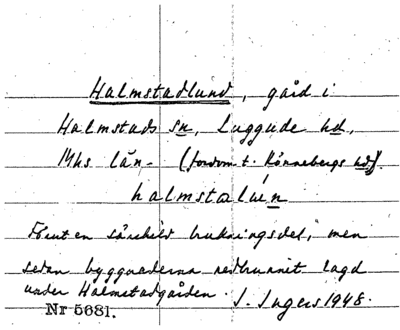 Halmstadlund, gård i
Halmstads sn, Luggude hd,
Mhs län. (fordom t. Rönnebergs hd).
halmstalún
Förut en särskild brukningsdel, men
sedan byggnaderna nedbrunnit lagd
under Halmstadgården. I. Ingers 1948.
Nr 5681.